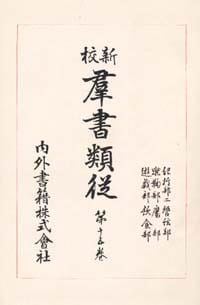 紀行部二 管絃部
蹴鞠部 鷹部
遊戯部 飲食部
新校
羣書類從
第十五卷
內外書籍株式會社